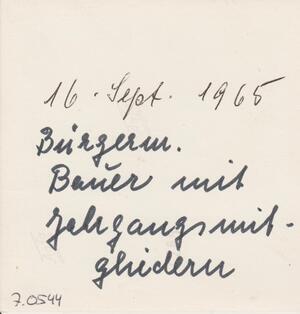 16. Sept. 1965
Bürgerm.
Bauer mit
Jahrgangsmit-
gliedern
7.0544